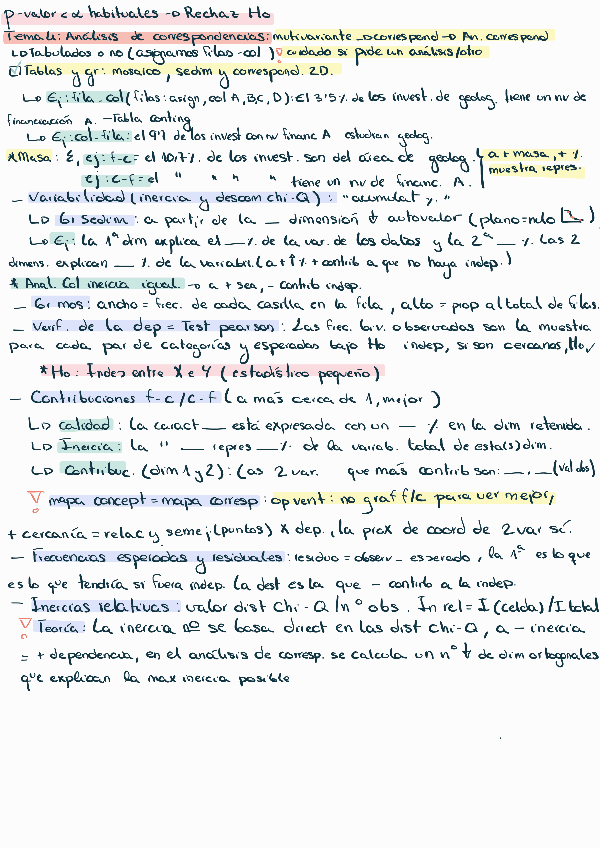 p-valor < α habituales → Rechaz Ho
Tema 4: Análisis de correspondencias: mutivariante → correspond → An. correspond
↳ Tabulados o no (asignamos filas-col) ! cuidado si pide un análisis/otro
Tablas y gr: mosaico, sedim y correspond. 2D.
↳ Ej: fila-col (filas: asign, col A, B, C, D): El 3'5% de los invest. de geolog. tiene un nv de
financiación A. - Tabla conting
↳ Ej: col-fila: el 9'7 de los invest con nv financ A estudian geolog.
* Masa: Σ, ej: f-c = el 10,7% de los invest. son del área de geolog. a + masa, + %
ej: c-f = el " " " " tiene un nv de financ. A. muestra repres.
- Variabilidad (inercia y descom chi-Q): "acumulat %."
↳ Gr Sedim: a partir de la _ dimensión ↓ autovalor (plano = nulo)
↳ Ej: la 1ª dim explica el _% de la var. de los datos y la 2ª _%. Las 2
dimens. explican _% de la variabil. (a + ↑% + contrib a que no haya indep.)
* Anal. Col inercia igual → a + sea, - contrib indep.
- Gr mos: ancho = frec. de cada casilla en la fila, alto = prop al total de filas.
- Verif. de la dep = Test pearson: Las frec. biv. observadas son la muestra
para cada par de categorías y esperadas bajo Ho indep, si son cercanas, Ho ✓
* Ho: Indep entre X e Y (estadístico pequeño)
- Contribuciones f-c/c-f (a más cerca de 1, mejor)
↳ calidad: la caract _ está expresada con un _% en la dim retenida.
↳ Inercia: la " _ repres _% de la variab. total de esta(s) dim.
↳ Contribuc. (dim 1 y 2): Las 2 var. que más contrib son: _, _ (val abs)
! mapa concept = mapa corresp: op vent: no graf f/c para ver mejor,
+ cercanía = relac y semej (puntos) X dep., la prox de coord de 2 var sí.
- Frecuencias esperadas y residuales: residuo = observ - esperado, la 1ª es lo que
es lo que tendría si fuera indep. La dest es la que - contrib a la indep.
- Inercias relativas: valor dist Chi-Q / nº obs. In rel = I (celda) / I total
! Teoría: La inercia no se basa direct en las dist chi-Q, a - inercia
= + dependencia, en el análisis de corresp. se calcula un nº ↓ de dim ortogonales
que explican la max inercia posible